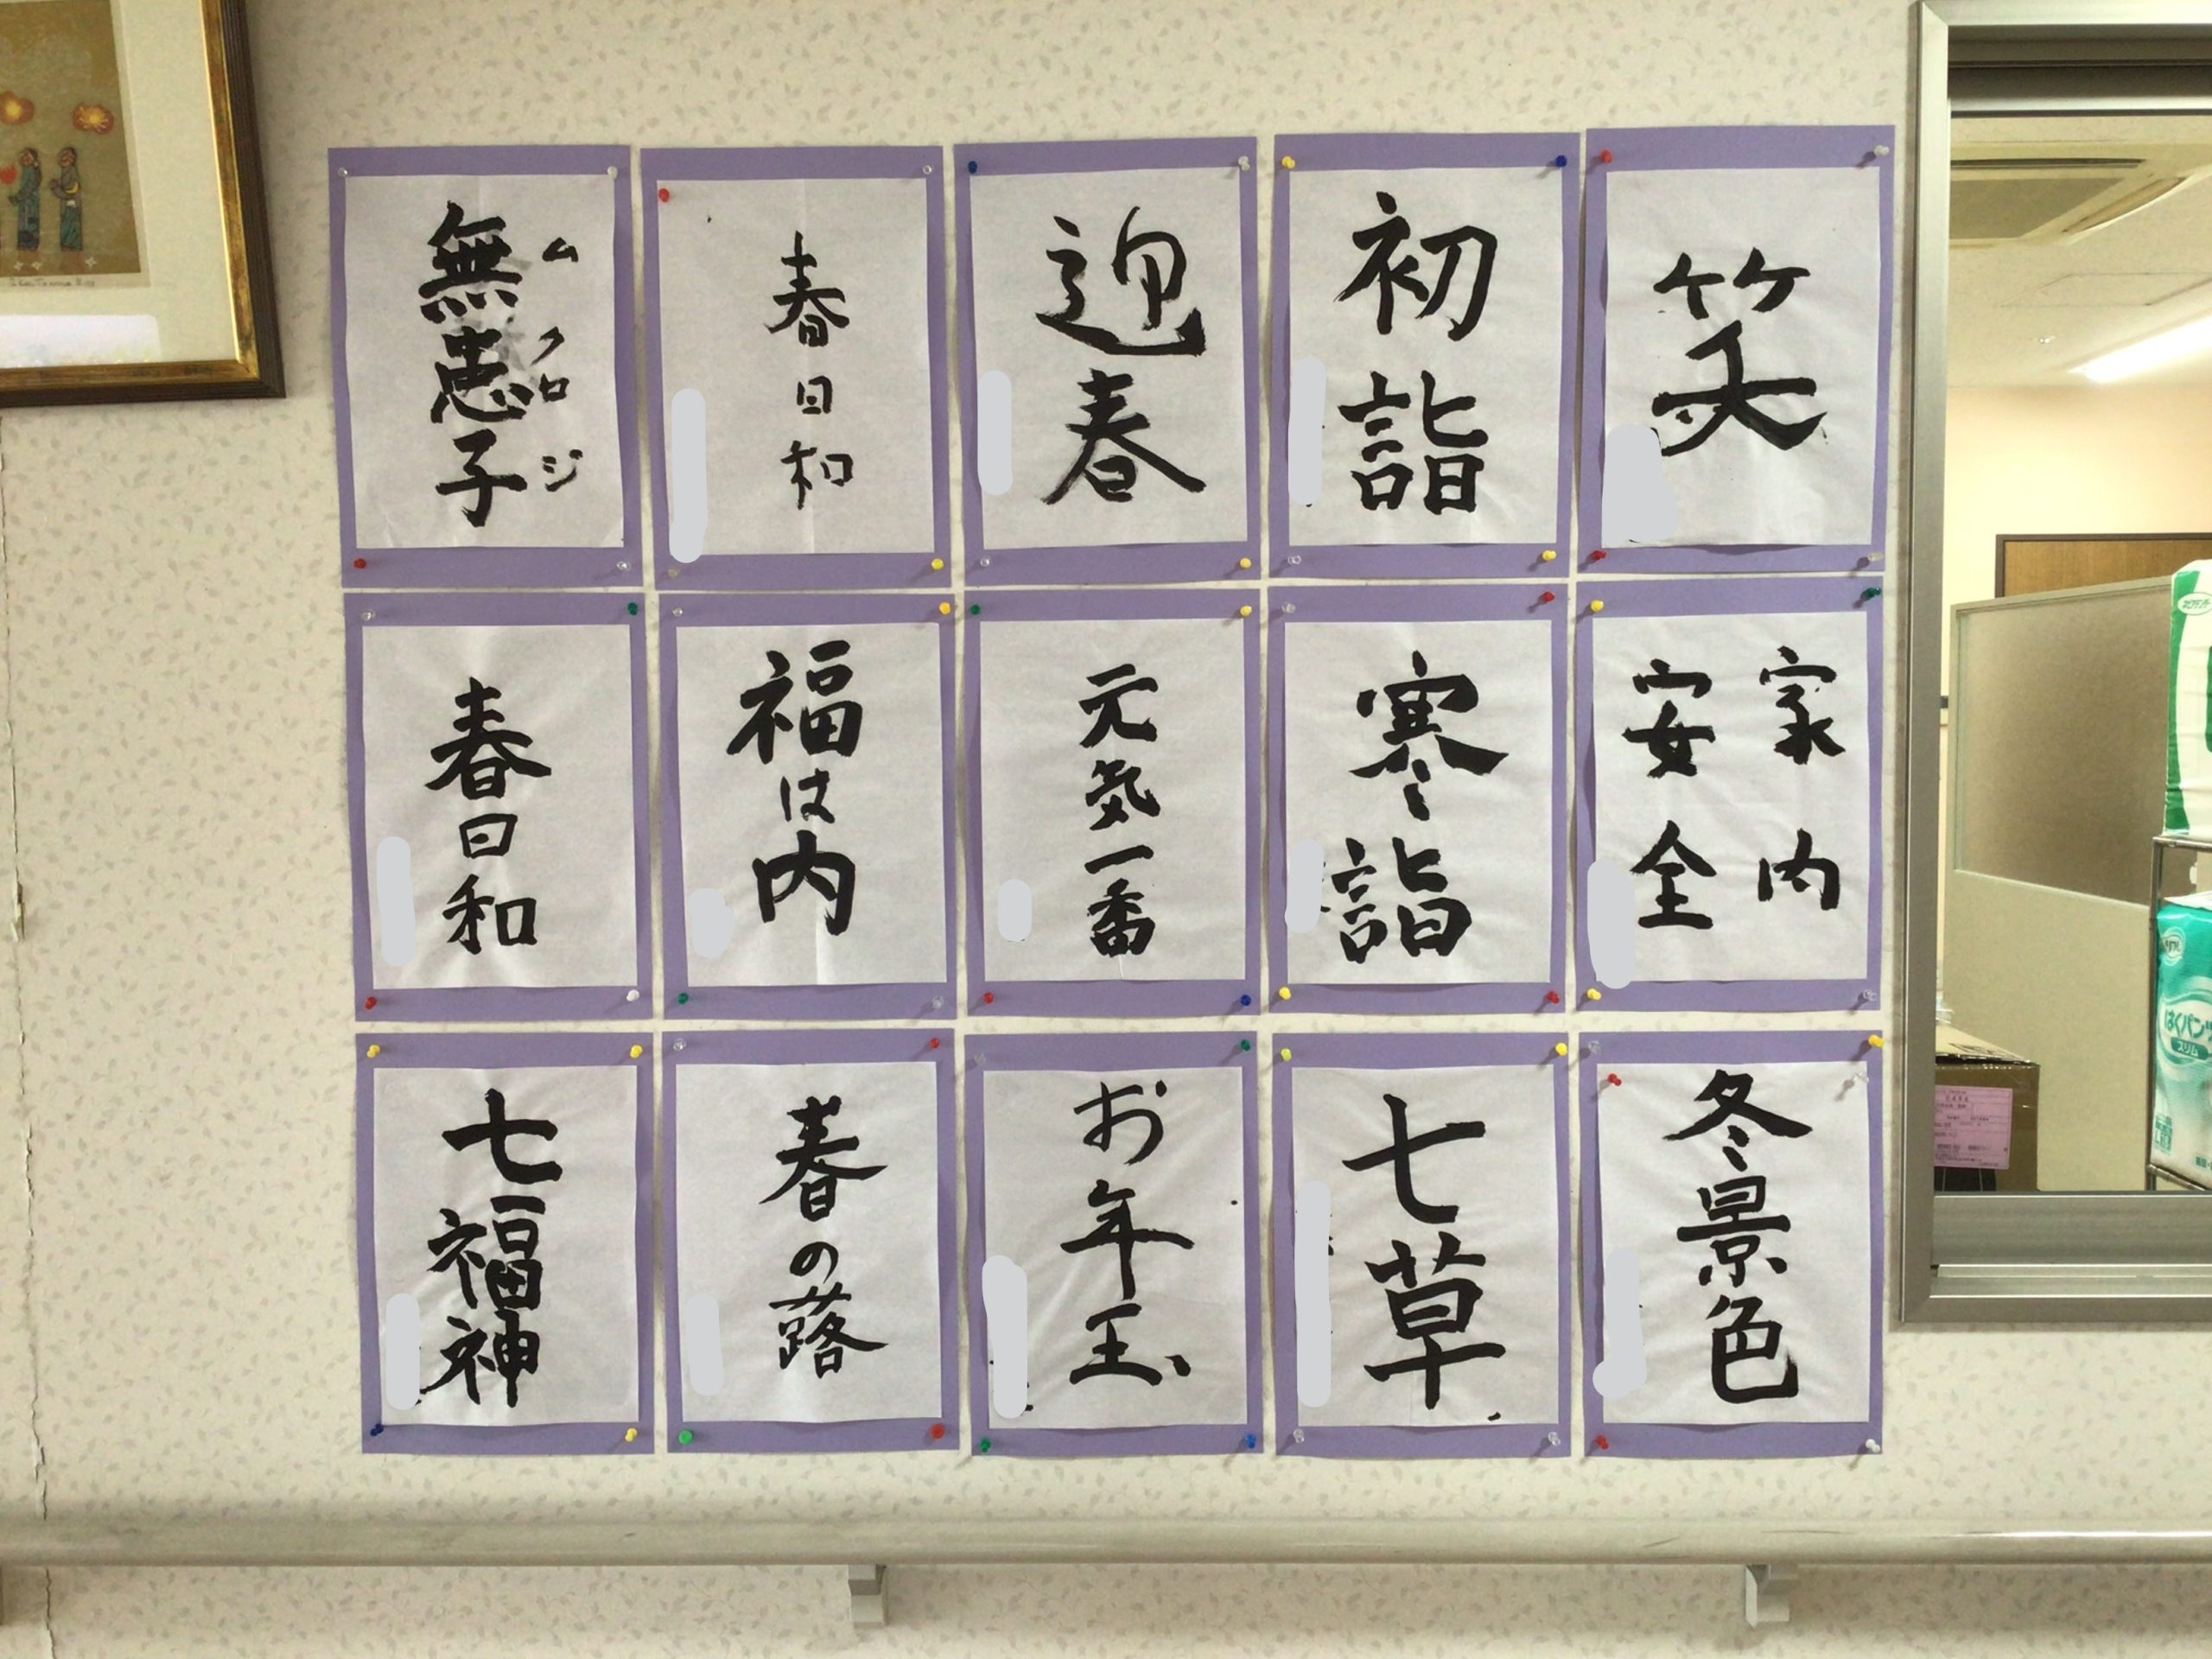 笑
初詣
迎春
春日和
無患子
ムクロジ
家内
安全
寒詣
元気一番
福は内
春日和
冬景色
七草
お年玉
春の蕗
七福神
はくパンツ
スリム